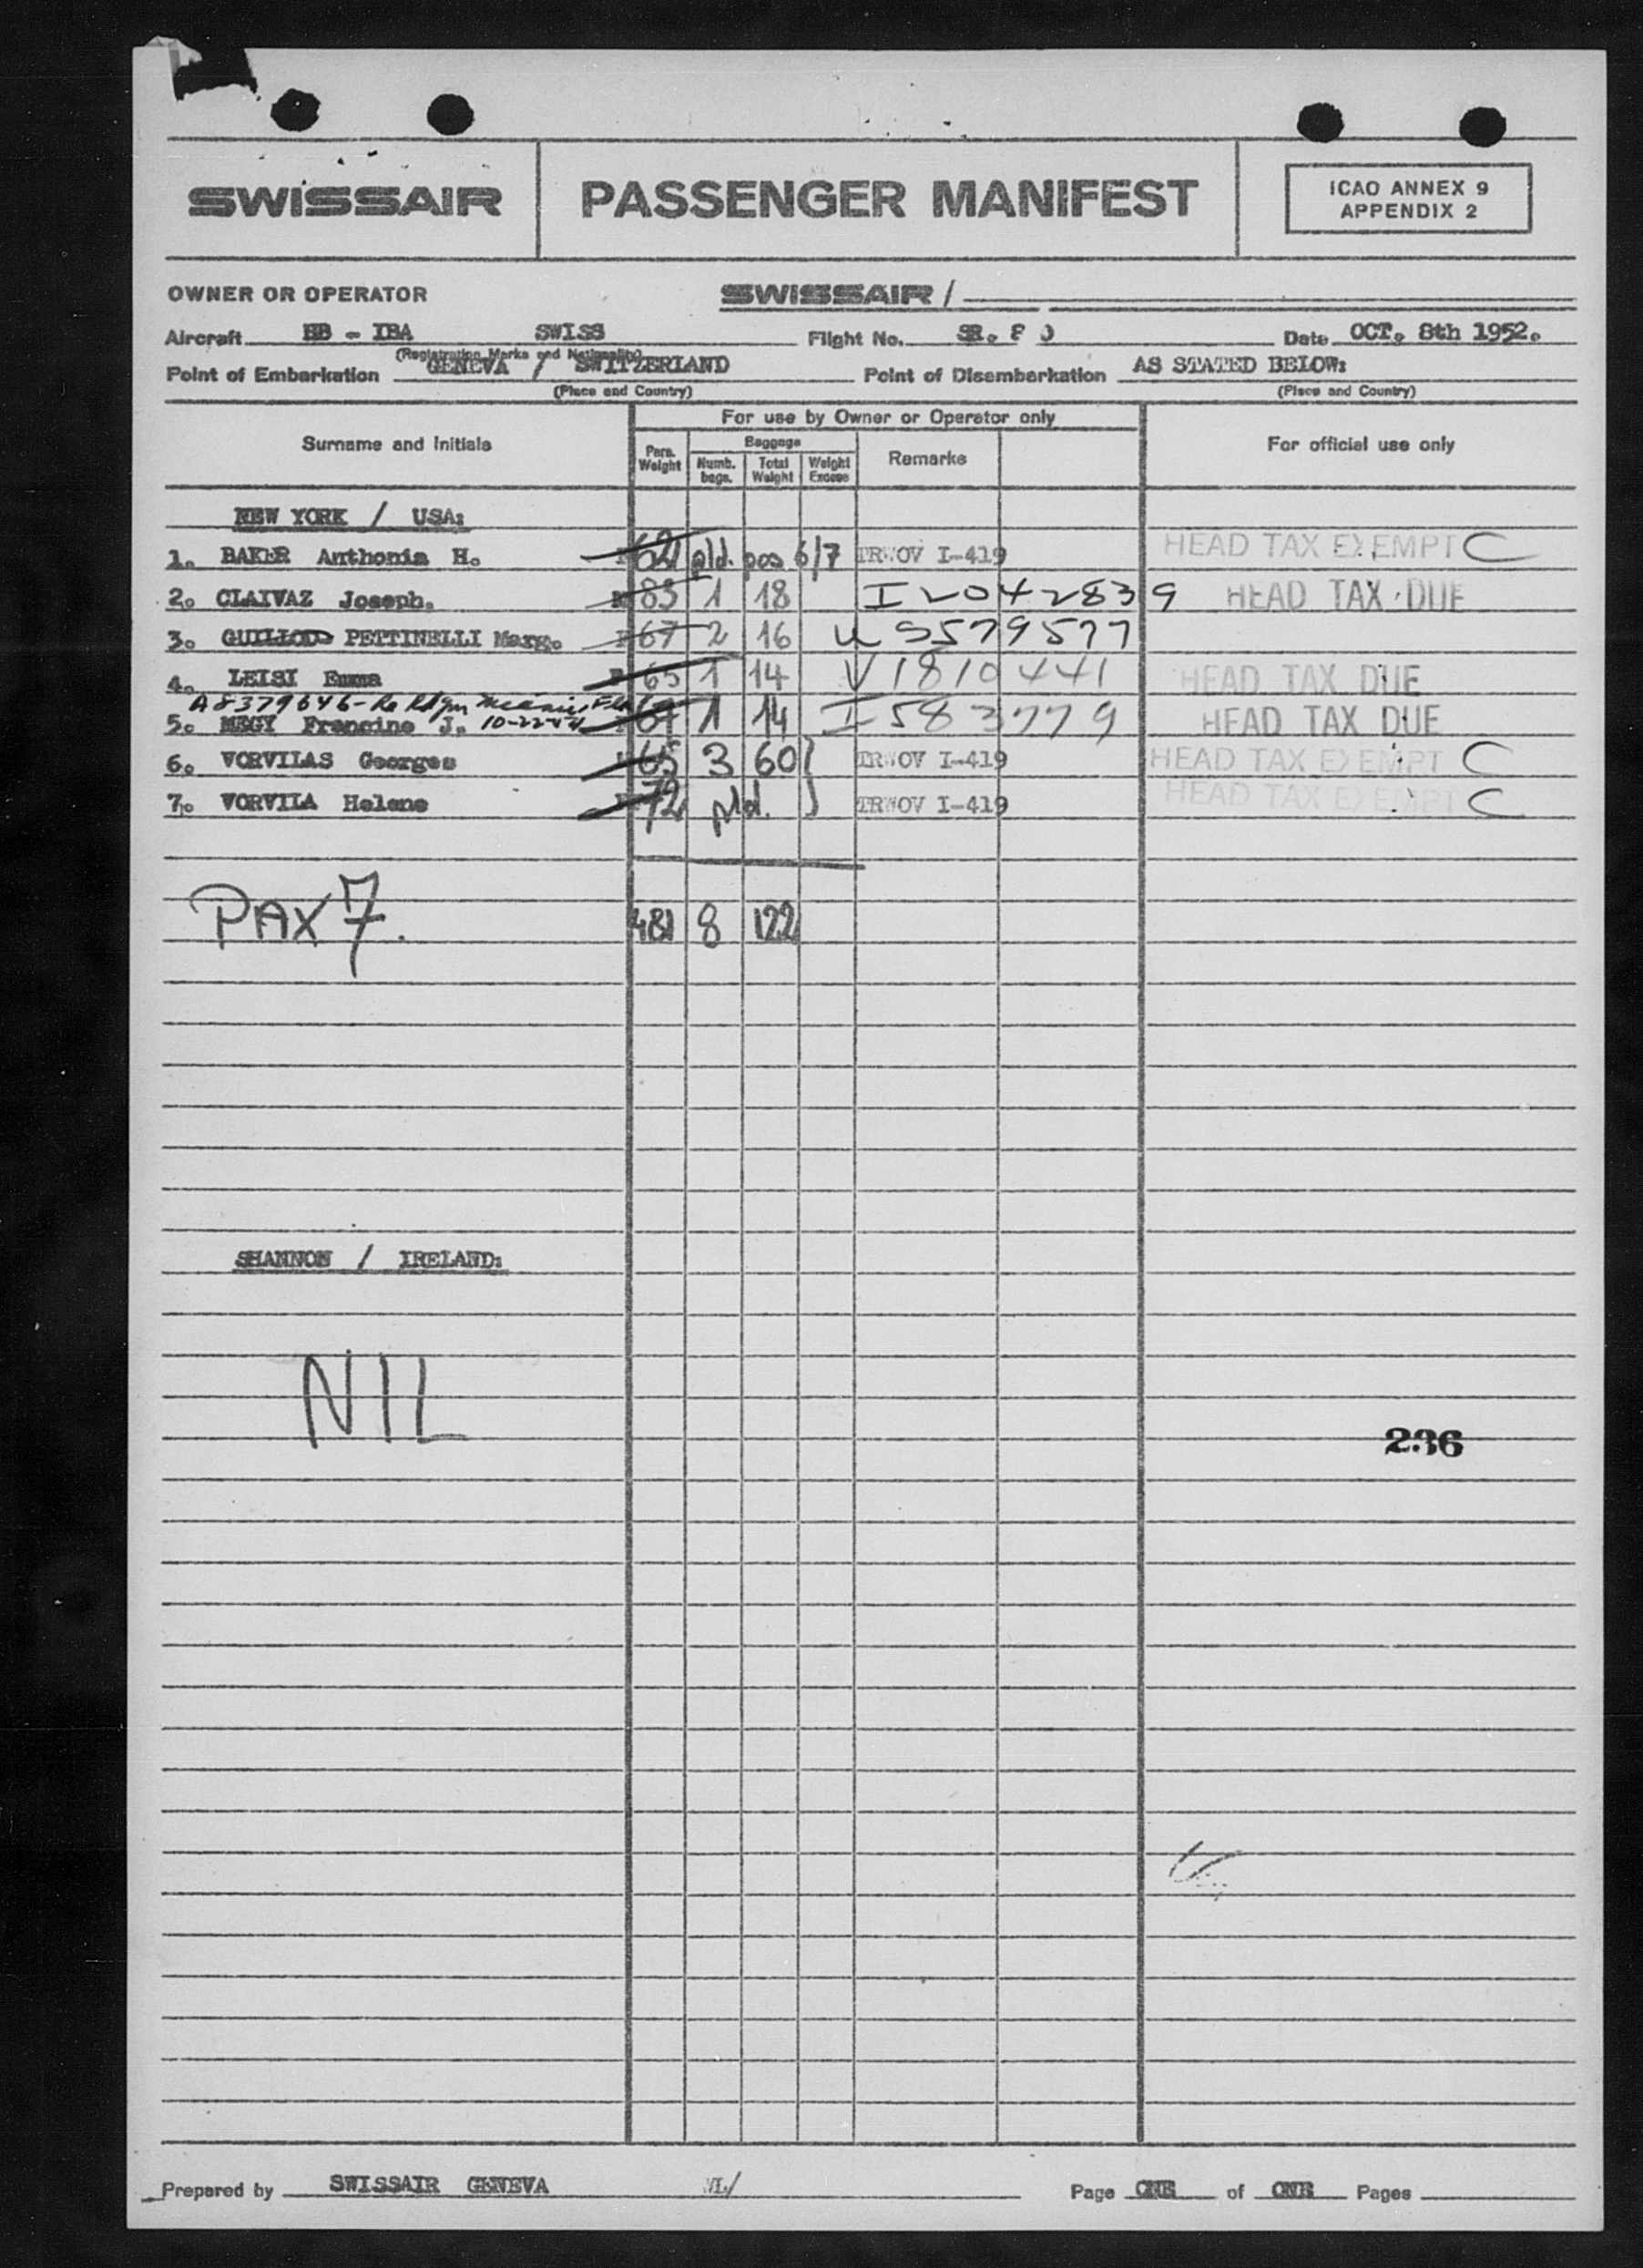 SWISSAIR PASSENGER MANIFEST ICAO ANNEX 9
APPENDIX 2
OWNER OR OPERATOR SWISSAIR /
Aircraft HB - IBA SWISS Flight No. SR. Date OCT. 8th 1952.
(Registration Marks and Nationality)
Point of Embarkation GENEVA / SWITZERLAND Point of Disembarkation AS STATED BELOW:
(Place and Country) (Place and Country)
For use by Owner or Operator only
Surname and Initials Pers. Weight Baggage Remarks For official use only
Numb. bags. Total Weight Weight Excess
NEW YORK / USA:
1. BAKER Anthonia H. 62 pld. pos 6/7 TRWOV I-419 HEAD TAX EXEMPT C
2. CLAIVAZ Joseph. 83 1 18 I2042839 HEAD TAX DUE
3. GUILLOD PETTINELLI Marg. 67 2 16 US579577
4. LEISI Emma 65 1 14 V1810441 HEAD TAX DUE
A8379646- Re Miami, Fla
5. MEGY Francine J. 10-22-54 67 1 14 I583779 HEAD TAX DUE
6. VORVILAS Georges 65 3 60 } TRWOV I-419 HEAD TAX EXEMPT C
7. VORVILA Helene 72 pld. } TRWOV I-419 HEAD TAX EXEMPT C
PAX 7. 481 8 122
SHANNON / IRELAND:
NIL
236
Prepared by SWISSAIR GENEVA Page ONE of ONE Pages